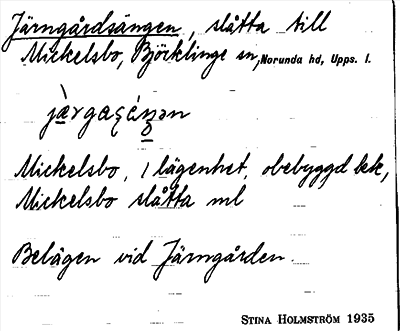 Järngårdsängen, slåtta till
Mickelsbo, Björklinge sn, Norunda hd, Upps. l.
Mickelsbo, 1 lägenhet, obebyggd kk,
Mickelsbo slåtta ml
Belägen vid Järngården.
STINA HOLMSTRÖM 1935